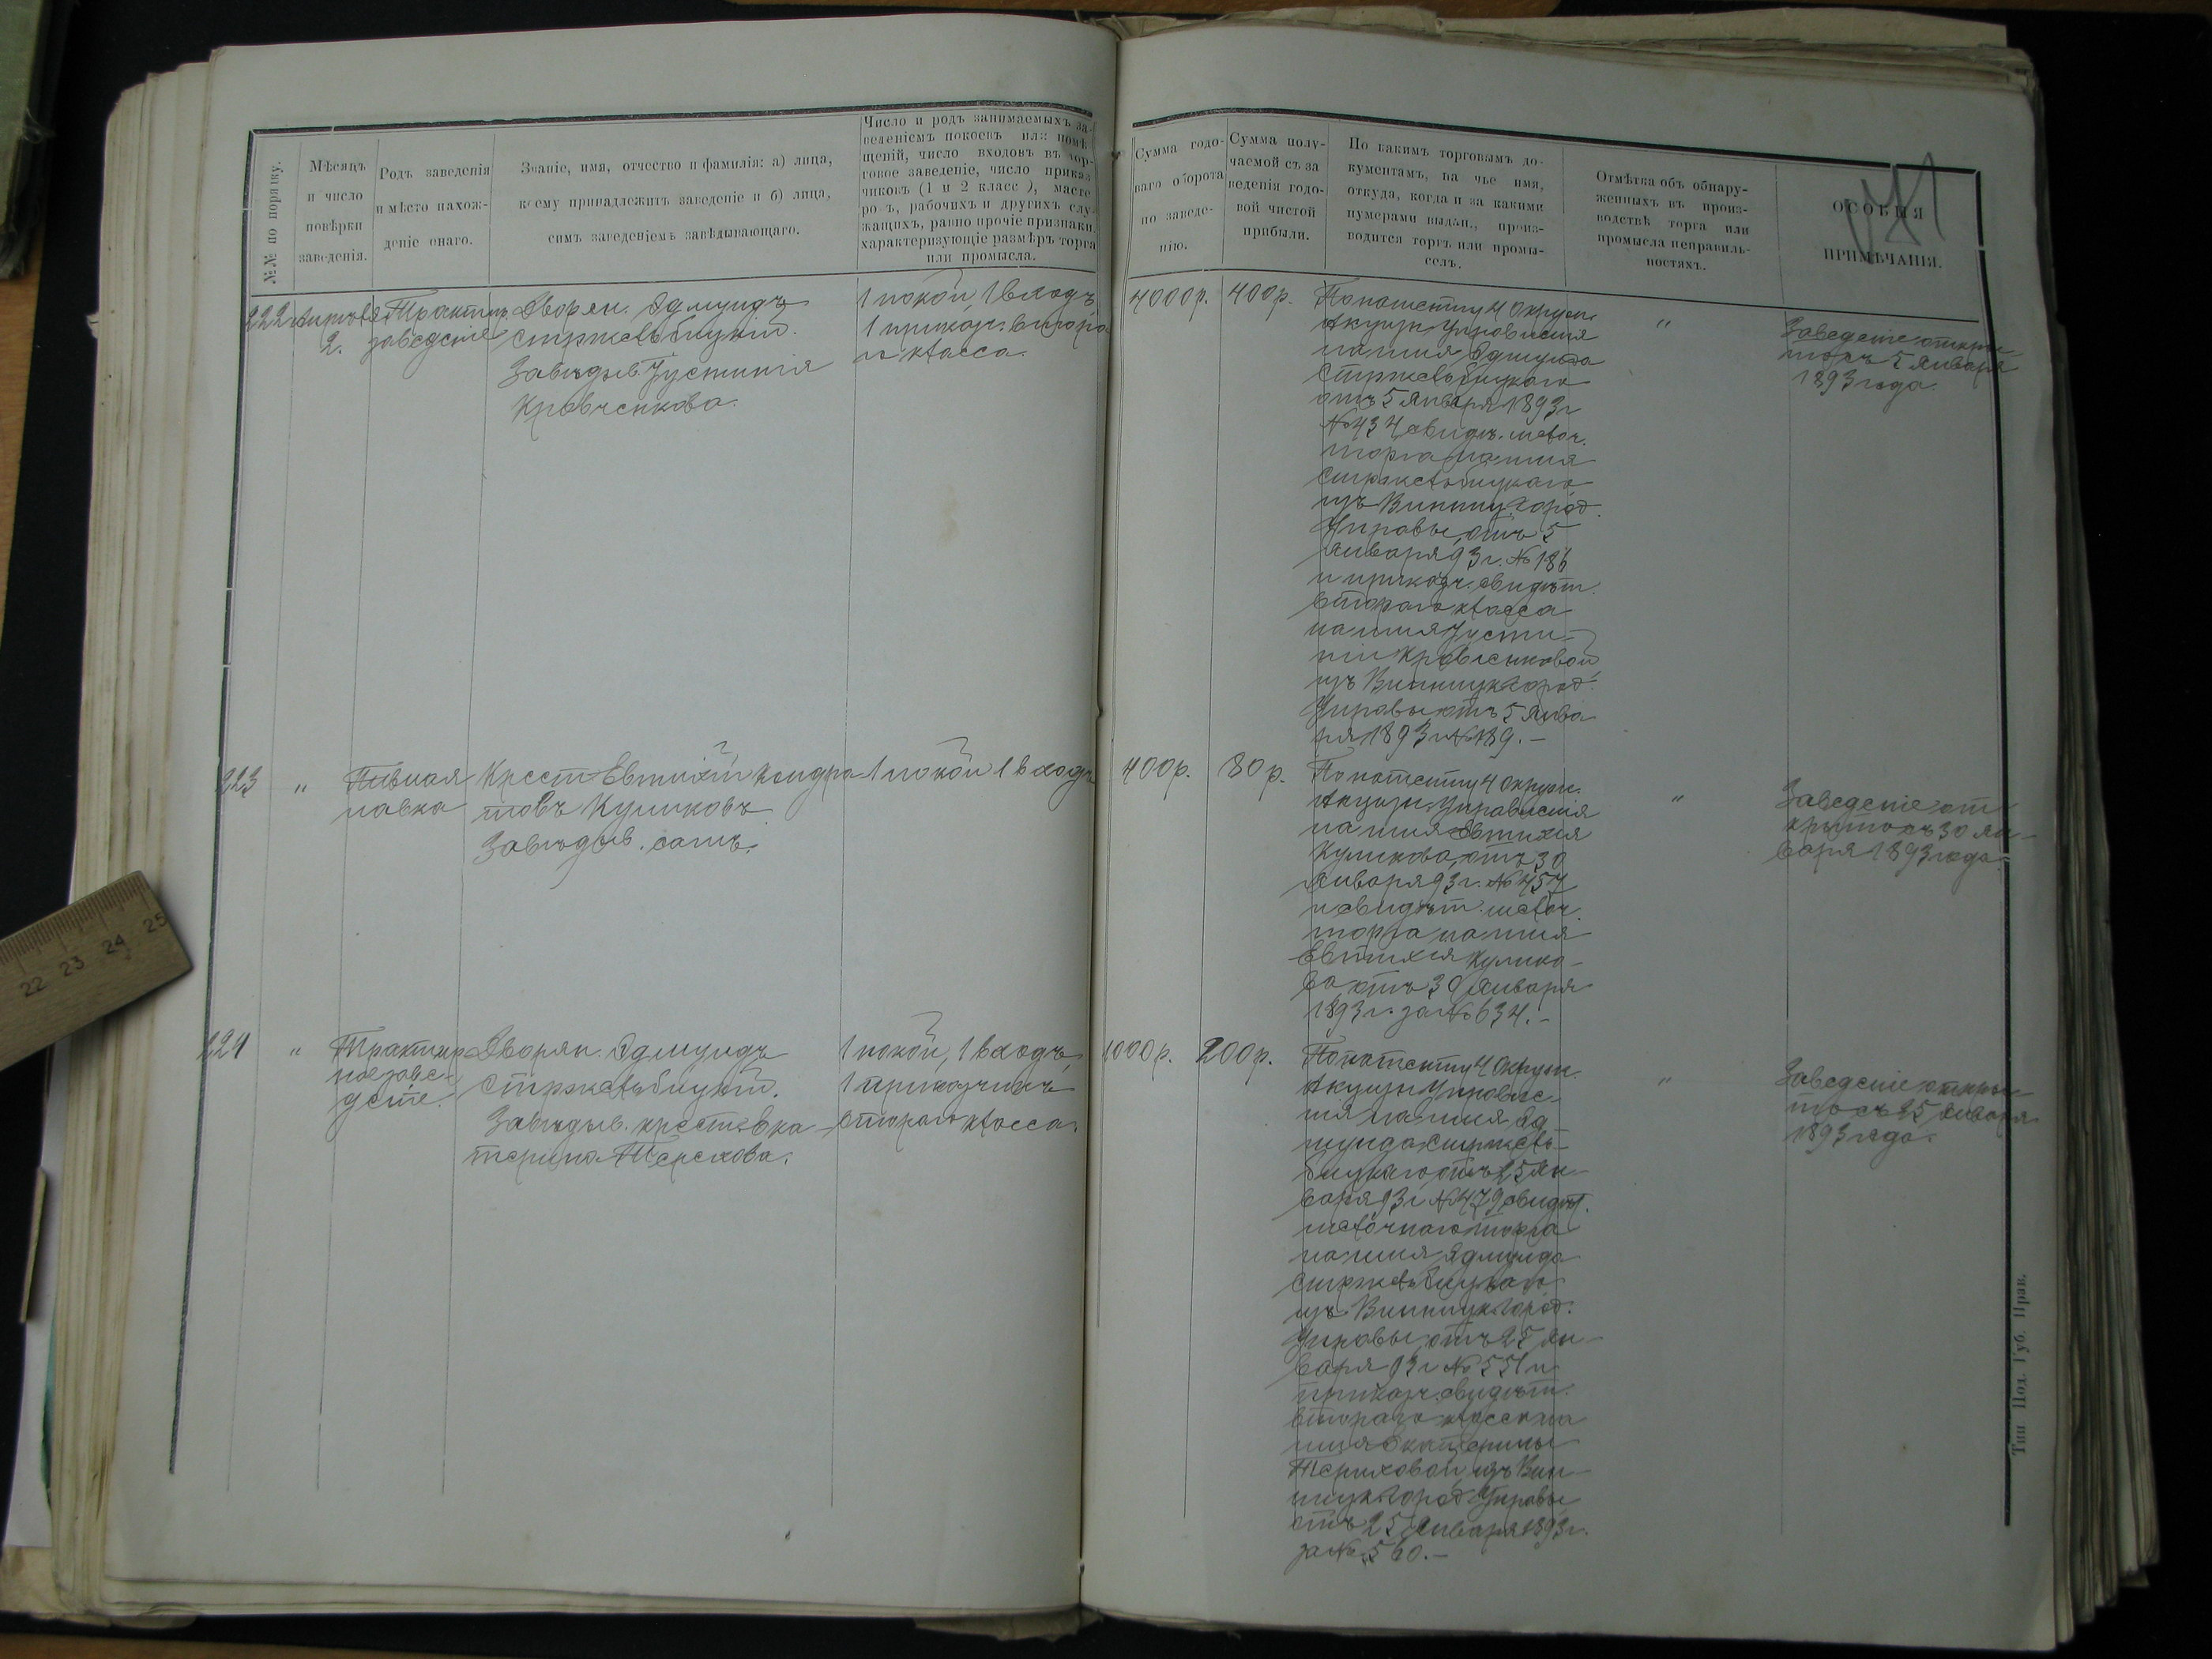 №№ по порядку.
Мѣсяцъ
и число
повѣрки
заведенія.
Родъ заведенія
и мѣсто нахож-
деніе онаго.
Званіе, имя, отчество и фамилія: а) лица,
коему принадлежитъ заведеніе и б) лица,
симъ заведеніемъ завѣдывающаго.
Число и родъ занимаемыхъ за-
веденіемъ покоевъ или помѣ-
щеній, число входовъ въ тор-
говое заведеніе, число приказ-
чиковъ (1 и 2 класс ), масте
ро ъ, рабочихъ и другихъ слу-
жащихъ, равно прочіе признаки,
характеризующіе размѣръ торга
или промысла.
Сумма годо-
ваго оборота
по заведе-
нію.
Сумма полу-
чаемой съ за
веденія годо-
вой чистой
прибыли.
По какимъ торговымъ до-
кументамъ, на чье имя,
откуда, когда и за какими
нумерами выдан., произ-
водится торгъ или промы-
селъ.
Отмѣтка объ обнару-
женныхъ въ произ-
водствѣ торга или
промысла неправиль-
ностяхъ.
ОСОБЫЯ
ПРИМѢЧАНІЯ.
222
Апрѣля
2.
Трактир.
заведеніе
Дворян. Эдмундъ
Стржельбицкій.
Завѣдыв. Іустинія
Кравченкова.
1 покой, 1 входъ,
1 приказч. второ
го класса.
4000р.
400р.
По патенту 4 Окружн.
Акцизн. Управленія
на имя Эдмунда
Стржельбицкаго
отъ 5 Января 1893г
№434 свидѣ. мелоч.
торга на имя
Стржельбицкаго
изъ Винниц. город.
Управы, отъ 5
Января 93г. №186
и приказч. свидѣт.
втораго класса
на имя Іусти-
ніи Кравченковой
изъ Винницк. город.
Управы отъ 5 Янва
ря 1893г №189.—
"
Заведеніе откры-
то съ 5 Января
1893 года.
223
"
Пивная
лавка
Крест. Евтихій Кондра
товъ Куликовъ.
Завѣдыв. самъ.
1 покой 1 входъ
400р.
80р.
По патенту 4 Окружн.
Акцизн. Управленія
на имя Евтихія
Куликова, отъ 30
Января 93г. №457
и свидѣт. мелоч.
торга на имя
Евтихія Кулико-
ва отъ 30 Января
1893г. за №634.—
"
Заведеніе от
крыто съ 30 Ян-
варя 1893 года.
224
"
Трактир
ное заве-
деніе.
Дворян. Эдмундъ
Стржельбицкій.
Завѣдыв. крест. Ека
терина Терехова.
1 покой, 1 входъ,
1 приказчикъ
втораго класса.
1000р.
200р.
По патенту 4 Окружн.
Акцизн Управле-
нія на имя Эд
мунда Стржель-
бицкаго, отъ 25 Ян-
варя 93г №479 свидѣт.
мелочнаго торга
на имя Эдмунда
Стржельбицкаго
изъ Винницк. город.
Управы, отъ 25 Ян-
варя 93г №551 и
приказч. свидѣт.
втораго класса на
имя Екатерины
Тереховой, изъ Вин-
ницк. город. Управы
отъ 25 Января 1893г.
за №560.—
"
Заведеніе откры-
то съ 25 Января
1893 года.
Тип Под. Губ. Прав.
22 23 24 25